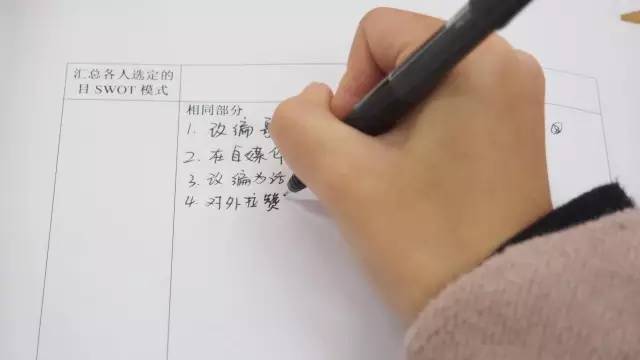 汇总各人选定的
目 SWOT 模式
相同部分
1. 改编
2. 在自媒体
3. 改编为话
4. 对外拉赞